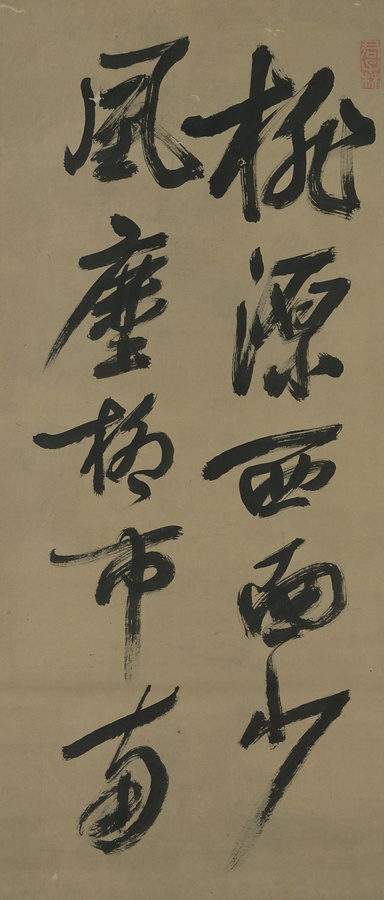 桃源西面少
風塵柳市南